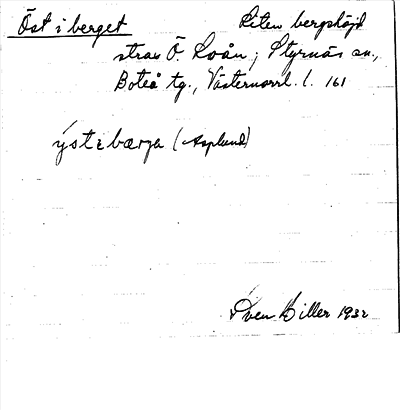 Öst i berget Liten bergshöjd
strax Ö. Loån; Styrnäs sn.,
Boteå tg., Västernorrl. l. 161
ýst i bærja (Asplund)
Sven Hiller 1932